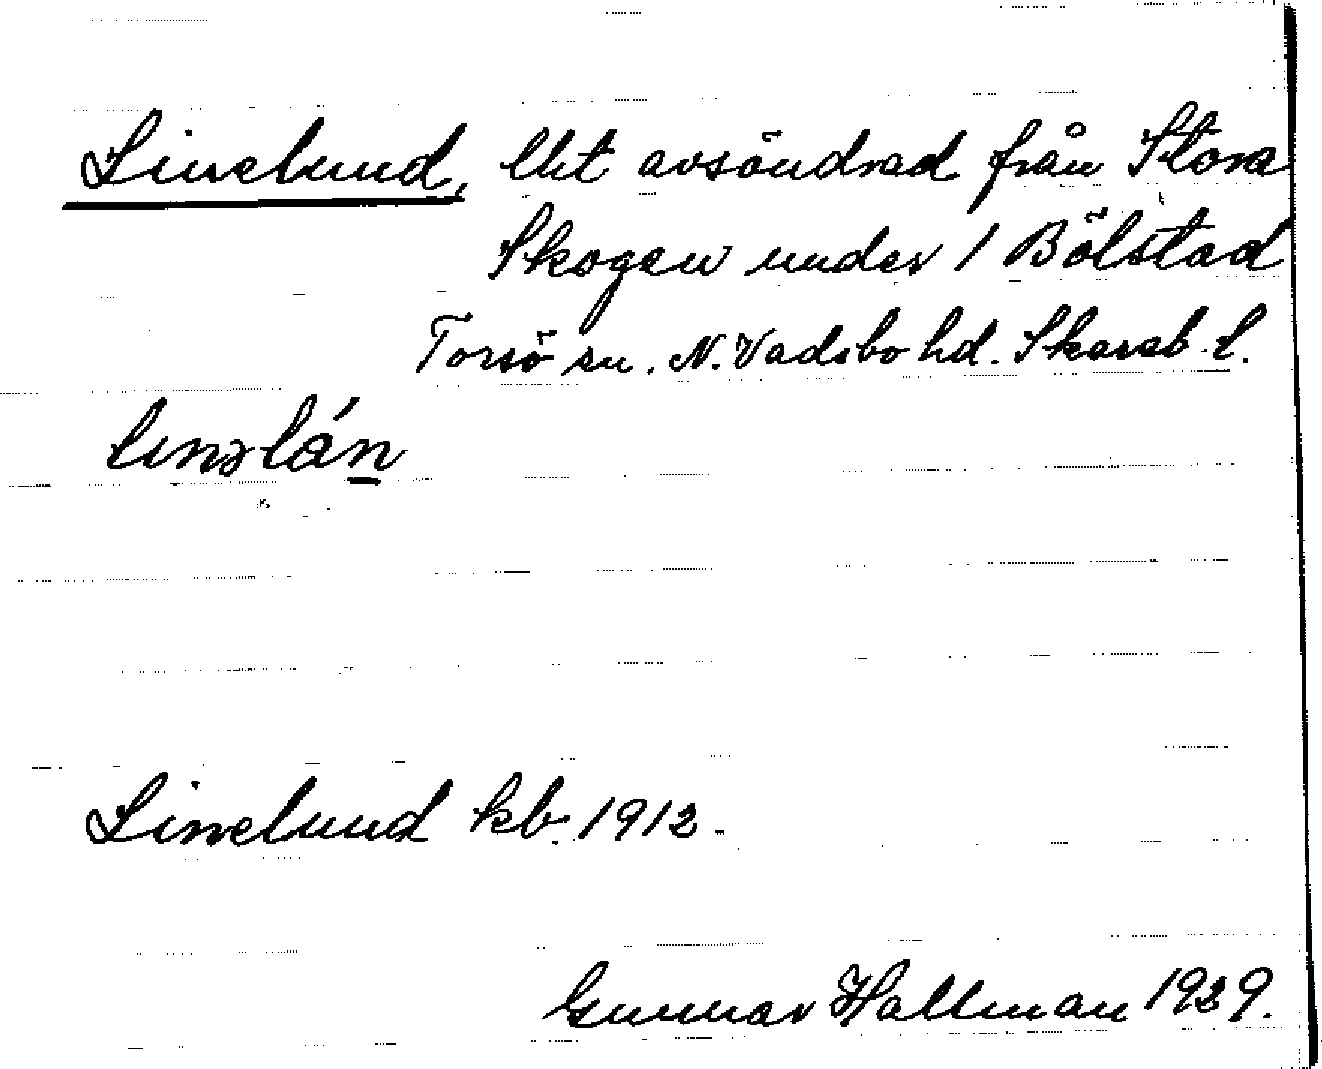 Linelund, lht avsöndrad från Stora
Skogen under 1 Bölstad
Torsö sn. N. Vadsbo hd. Skarab. l.
Linelund kb. 1912.
Gunnar Hallman 1929.